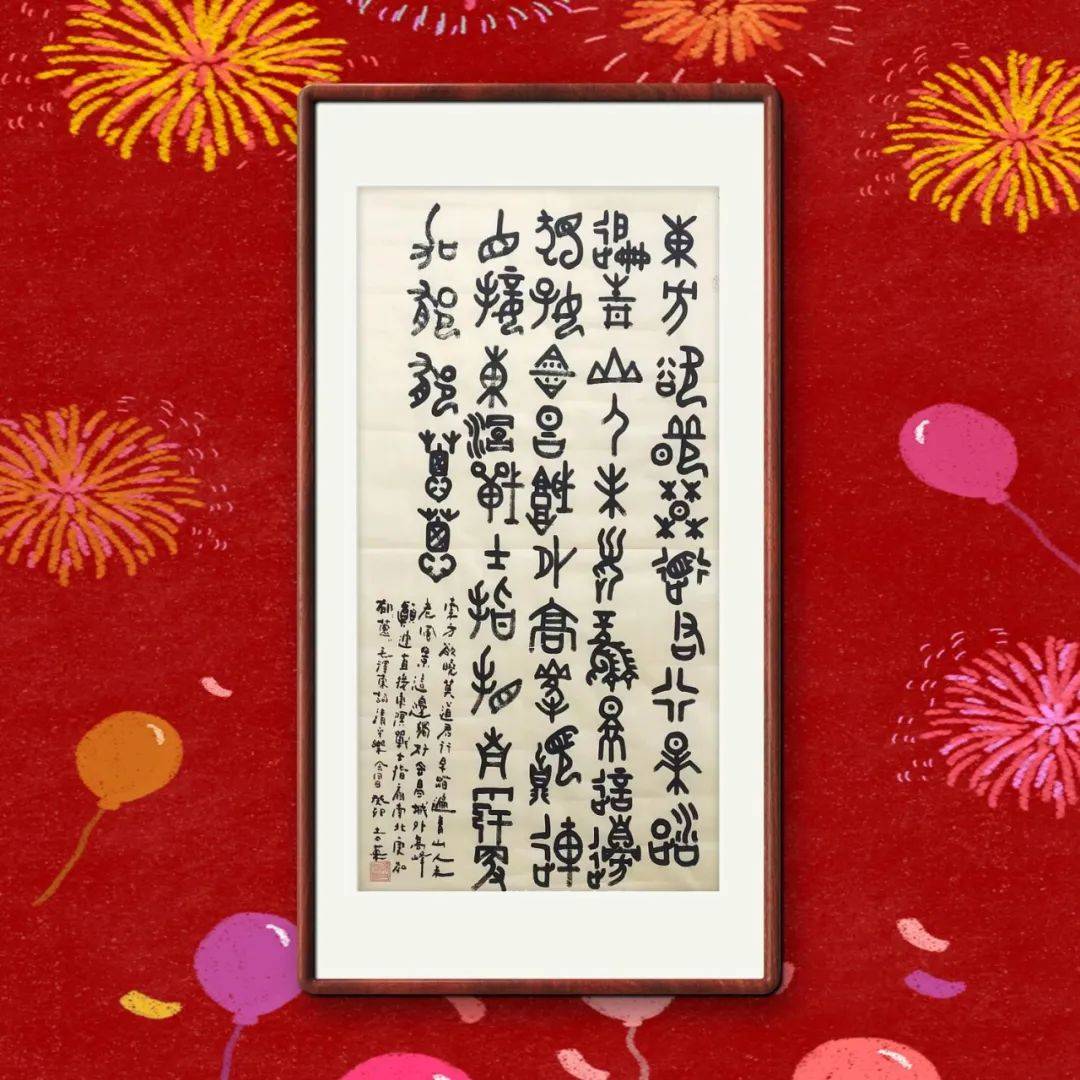 東方欲曉莫道君行早踏
遍青山人未老風景這邊
獨好會昌城外高峰顛連
直接東溟戰士指看南粵更
加郁郁蔥蔥
東方欲曉莫道君行早踏遍青山人未
老風景這邊獨好會昌城外高峰
顛連直接東溟戰士指看南粵更加
郁蔥毛澤東詞清平樂會昌癸卯